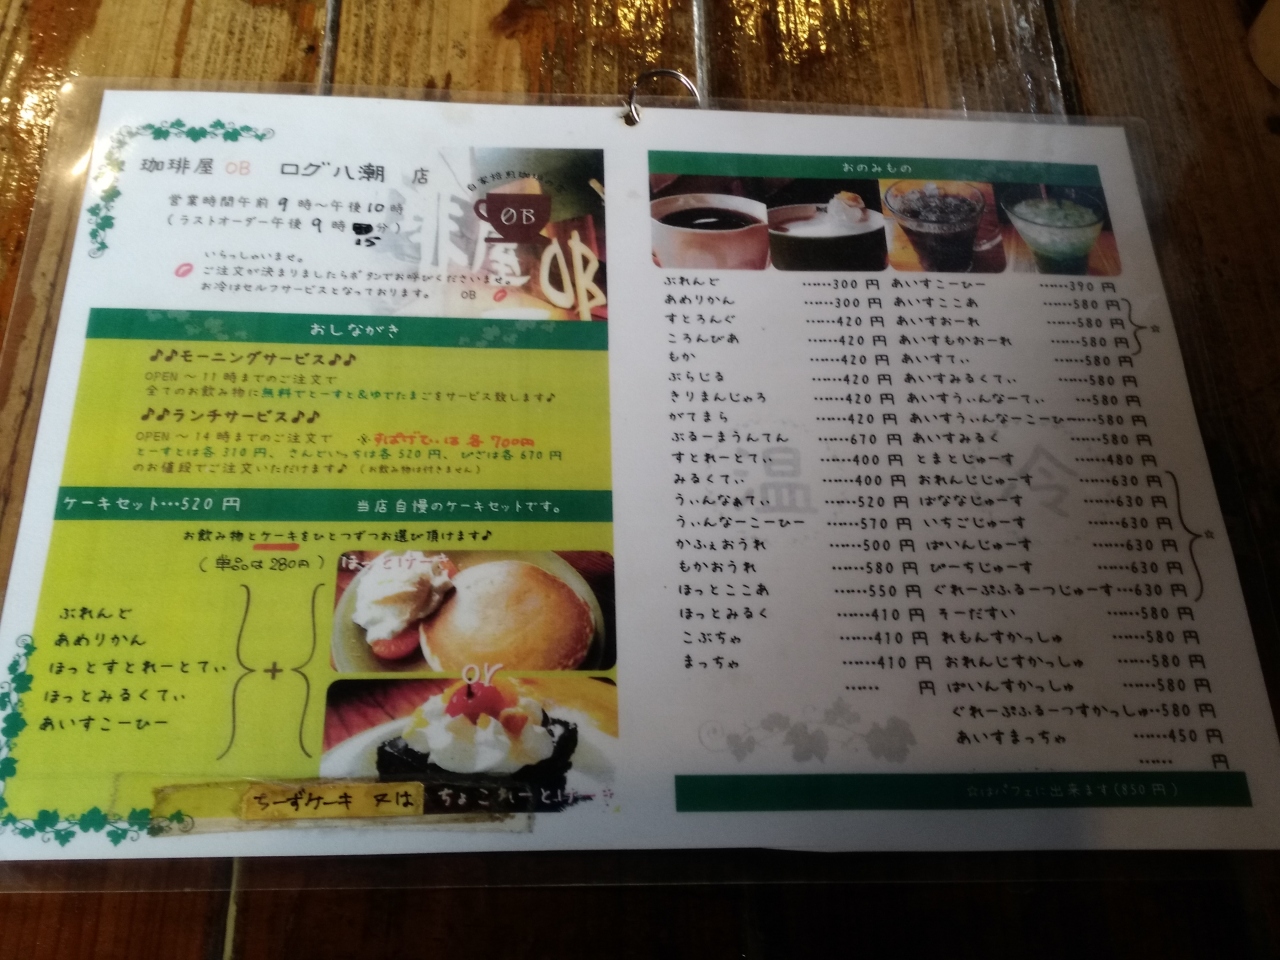 珈琲屋 OB ログ八潮 店
営業時間午前 9 時～午後 10 時
(ラストオーダー午後 9 時 15 分)
いらっしゃいませ。
ご注文が決まりましたらボタンでお呼びくださいませ。
お冷はセルフサービスとなっております。 OB
自家焙煎珈琲の店
OB
屋 OB
おしながき
♪♪モーニングサービス♪♪
OPEN ～ 11 時までのご注文で
全てのお飲み物に無料でとーすと&ゆでたまごをサービス致します♪
♪♪ランチサービス♪♪
OPEN ～ 14 時までのご注文で ※すぱげてぃは 各 700円
とーすとは各 310 円、さんどいっちは各 520 円、ぴざは各 670 円
のお値段でご注文いただけます♪ (お飲み物は付きません)
ケーキセット…520 円 当店自慢のケーキセットです。
お飲み物とケーキをひとつずつお選び頂けます♪
(単品は 280円)
ほっとけーき
ぶれんど
あめりかん
ほっとすとれーとてぃ
ほっとみるくてぃ
あいすこーひー
+
or
ちーずケーキ 又は ちょこれーとけーき
おのみもの
温
冷
ぶれんど ……300 円
あめりかん ……300 円
すとろんぐ ……420 円
ころんびあ ……420 円
もか ……420 円
ぶらじる ……420 円
きりまんじゃろ ……420 円
がてまら ……420 円
ぶるーまうんてん ……670 円
すとれーとてぃ ……400 円
みるくてぃ ……400 円
うぃんなぁてぃ ……520 円
うぃんなーこーひー ……570 円
かふぇおうれ ……500 円
もかおうれ ……580 円
ほっとここあ ……550 円
ほっとみるく ……410 円
こぶちゃ ……410 円
まっちゃ ……410 円
…… 円
あいすこーひー ……390 円
あいすここあ ……580 円
あいすおーれ ……580 円
あいすもかおーれ ……580 円
☆
あいすてぃ ……580 円
あいすみるくてぃ ……580 円
あいすうぃんなーてぃ ……580 円
あいすうぃんなーこーひー……580 円
あいすみるく ……580 円
とまとじゅーす ……480 円
おれんじじゅーす ……630 円
ばななじゅーす ……630 円
いちごじゅーす ……630 円
ぱいんじゅーす ……630 円
☆
ぴーちじゅーす ……630 円
ぐれーぷふるーつじゅーす…630 円
そーだすい ……580 円
れもんすかっしゅ ……580 円
おれんじすかっしゅ ……580 円
ぱいんすかっしゅ ……580 円
ぐれーぷふるーつすかっしゅ…580 円
あいすまっちゃ ……450 円
…… 円
☆はパフェに出来ます(850 円)